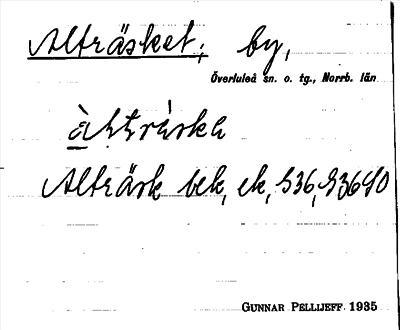 Alträsket, by,
Överluleå sn. o. tg., Norrb. län
Alträsk bek, ek, S36,
GUNNAR PELLIJEFF 1935